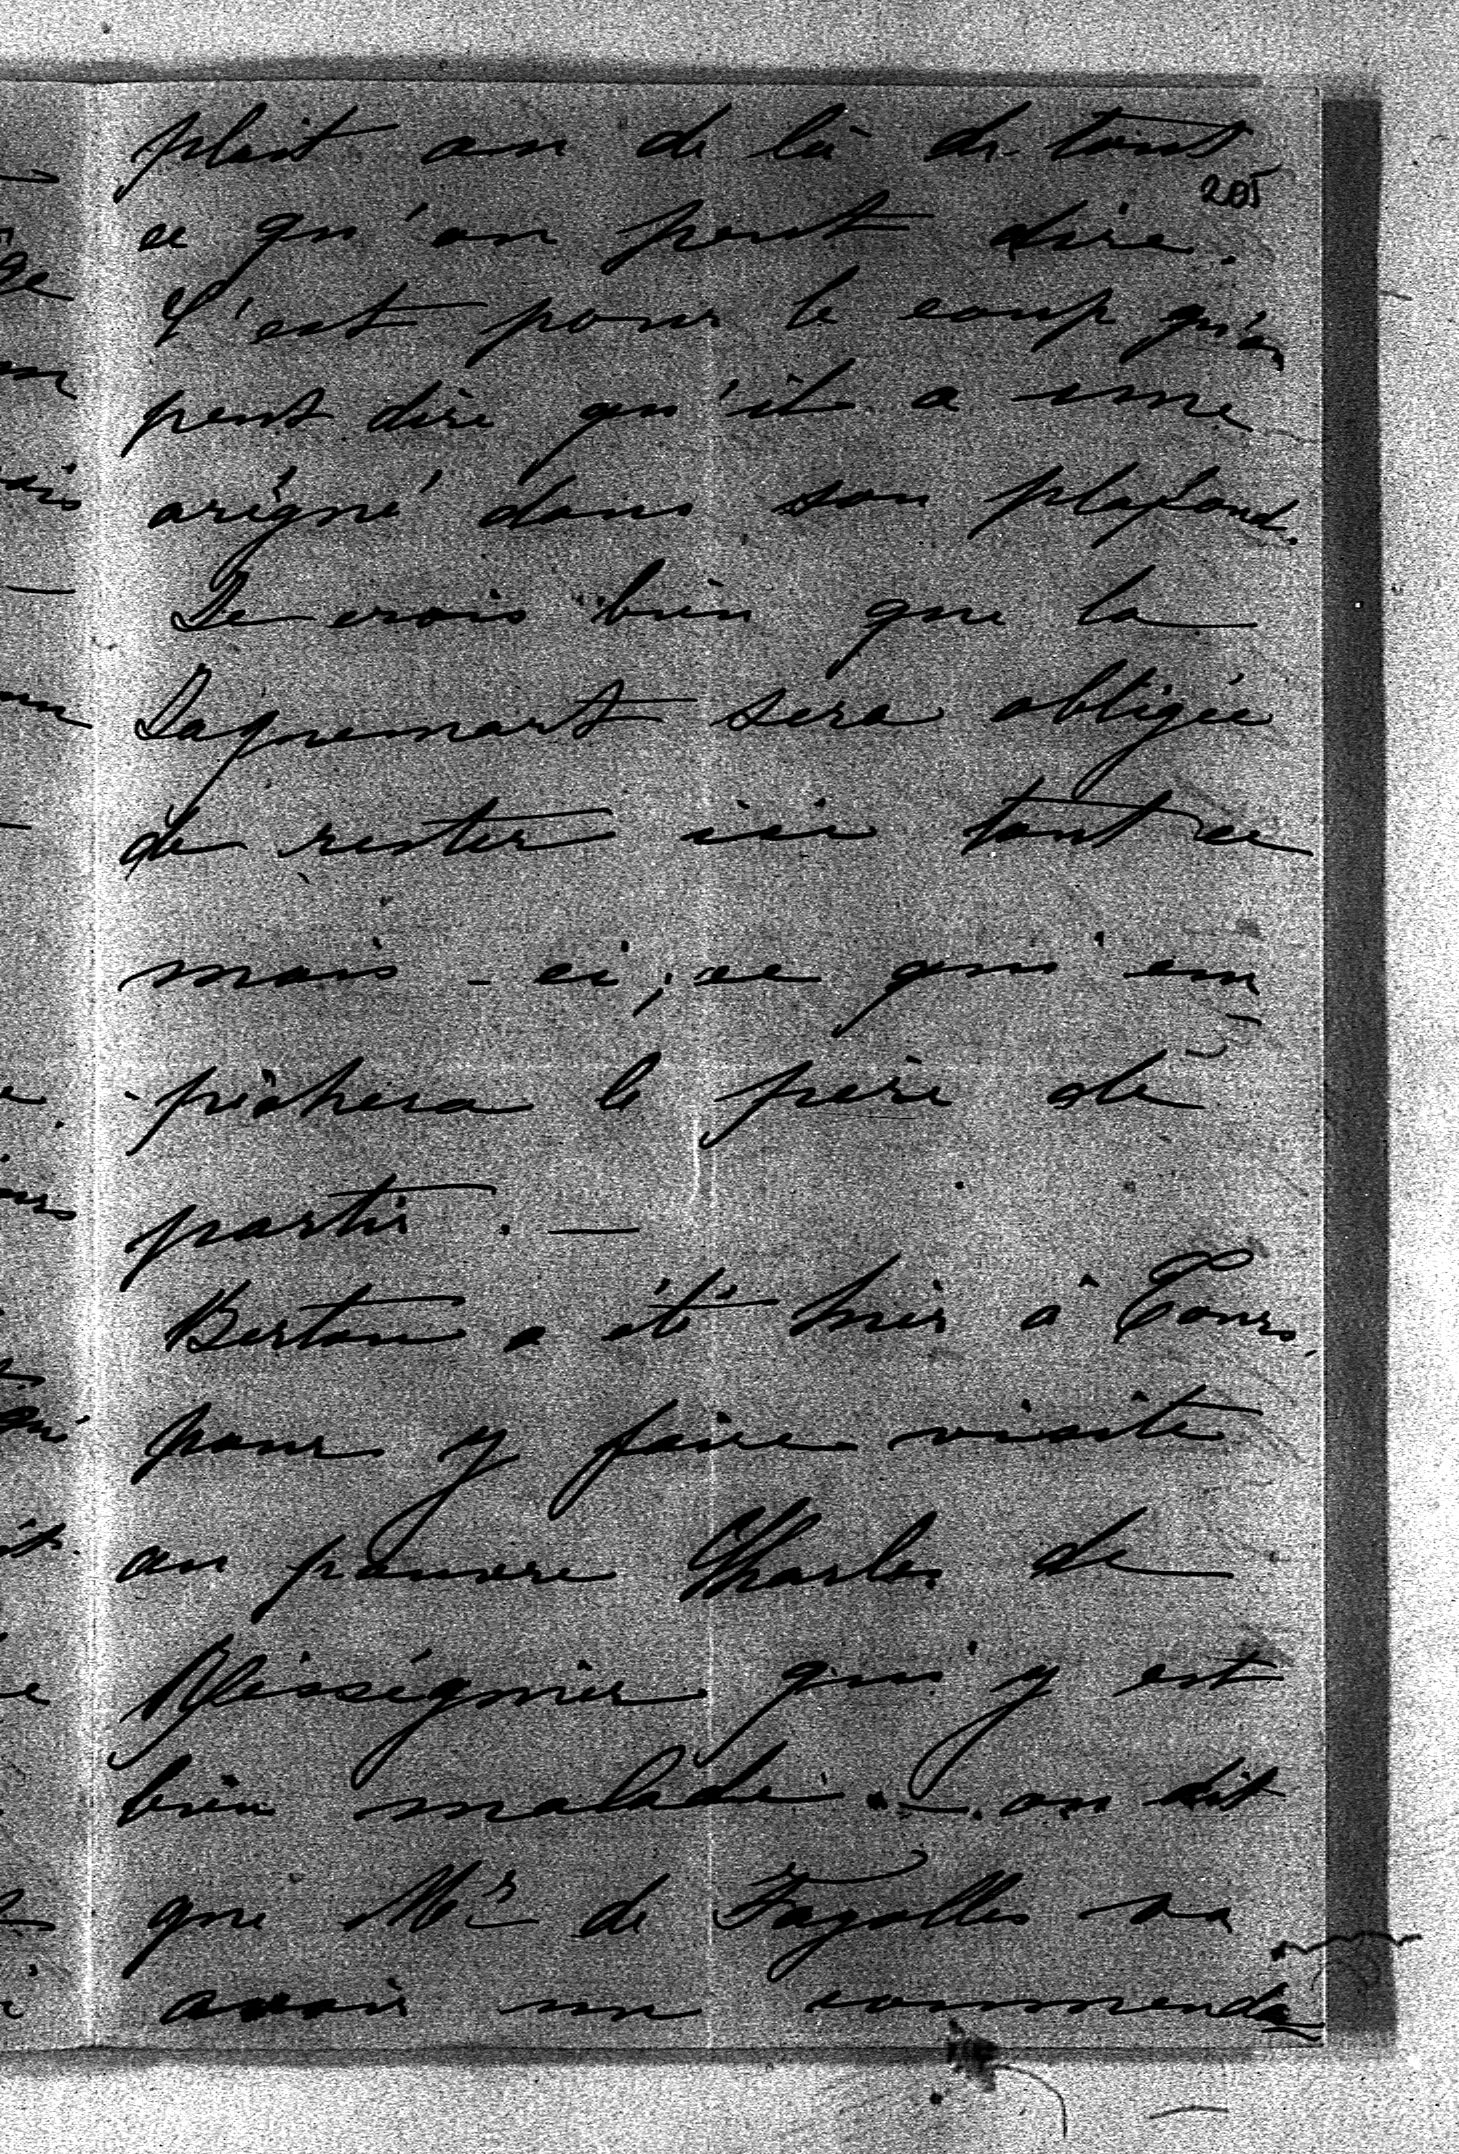 plait au de là de tout
205
ce qu'on peut dire.
C'est pour le coup qu'on
peut dire qu'il a une
arègné dans son plafond.
Je crois bien que la
Jaquemart sera obligée
de rester ici tout ce
mois-ci, ce qui em
-pèchera le père de
partir. —
Berton a été hier à Tours,
pour y faire visite
au pauvre Charles de
qui y est
bien malade. — on dit
que Mr de Fayolles va
avoir un commenda